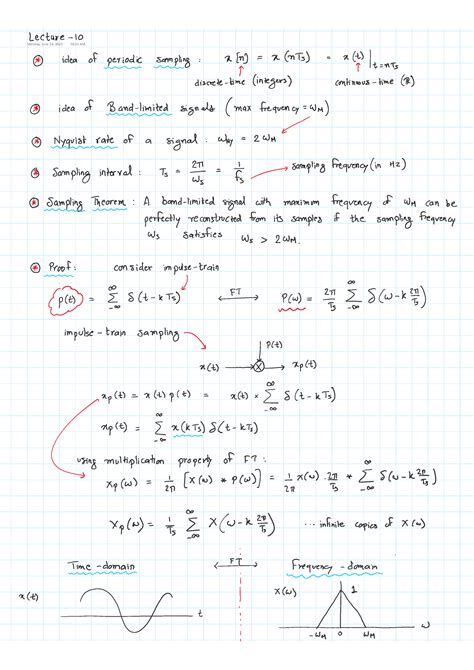 Lecture -10
* idea of periodic sampling : x[n] = x(nTs) = x(t)|t=nTs
discrete-time (integers) continuous-time (ℝ)
* idea of Band-limited signals (max frequency = ωM)
* Nyquist rate of a signal : ωNy = 2ωM
* Sampling interval : Ts = 2π/ωs = 1/fs → sampling frequency (in Hz)
* Sampling Theorem : A band-limited signal with maximum frequency of ωM can be
perfectly reconstructed from its samples if the sampling frequency
ωs satisfies ωs > 2ωM.
* Proof: consider impulse-train
p(t) = ∑_{-∞}^{∞} δ(t - kTs) ←FT→ P(ω) = 2π/Ts ∑_{-∞}^{∞} δ(ω - k 2π/Ts)
impulse-train sampling
p(t)
x(t) → ⊗ → xp(t)
xp(t) = x(t) p(t) = x(t) × ∑_{-∞}^{∞} δ(t - kTs)
xp(t) = ∑_{-∞}^{∞} x(kTs) δ(t - kTs)
using multiplication property of FT:
Xp(ω) = 1/2π [X(ω) * P(ω)] = 1/2π X(ω) · 2π/Ts * ∑_{-∞}^{∞} δ(ω - k 2π/Ts)
Xp(ω) = 1/Ts ∑_{-∞}^{∞} X(ω - k 2π/Ts) ...infinite copies of X(ω)
Time-domain ←FT→ Frequency-domain
x(t) t X(ω) 1 ω
-ωM 0 ωM